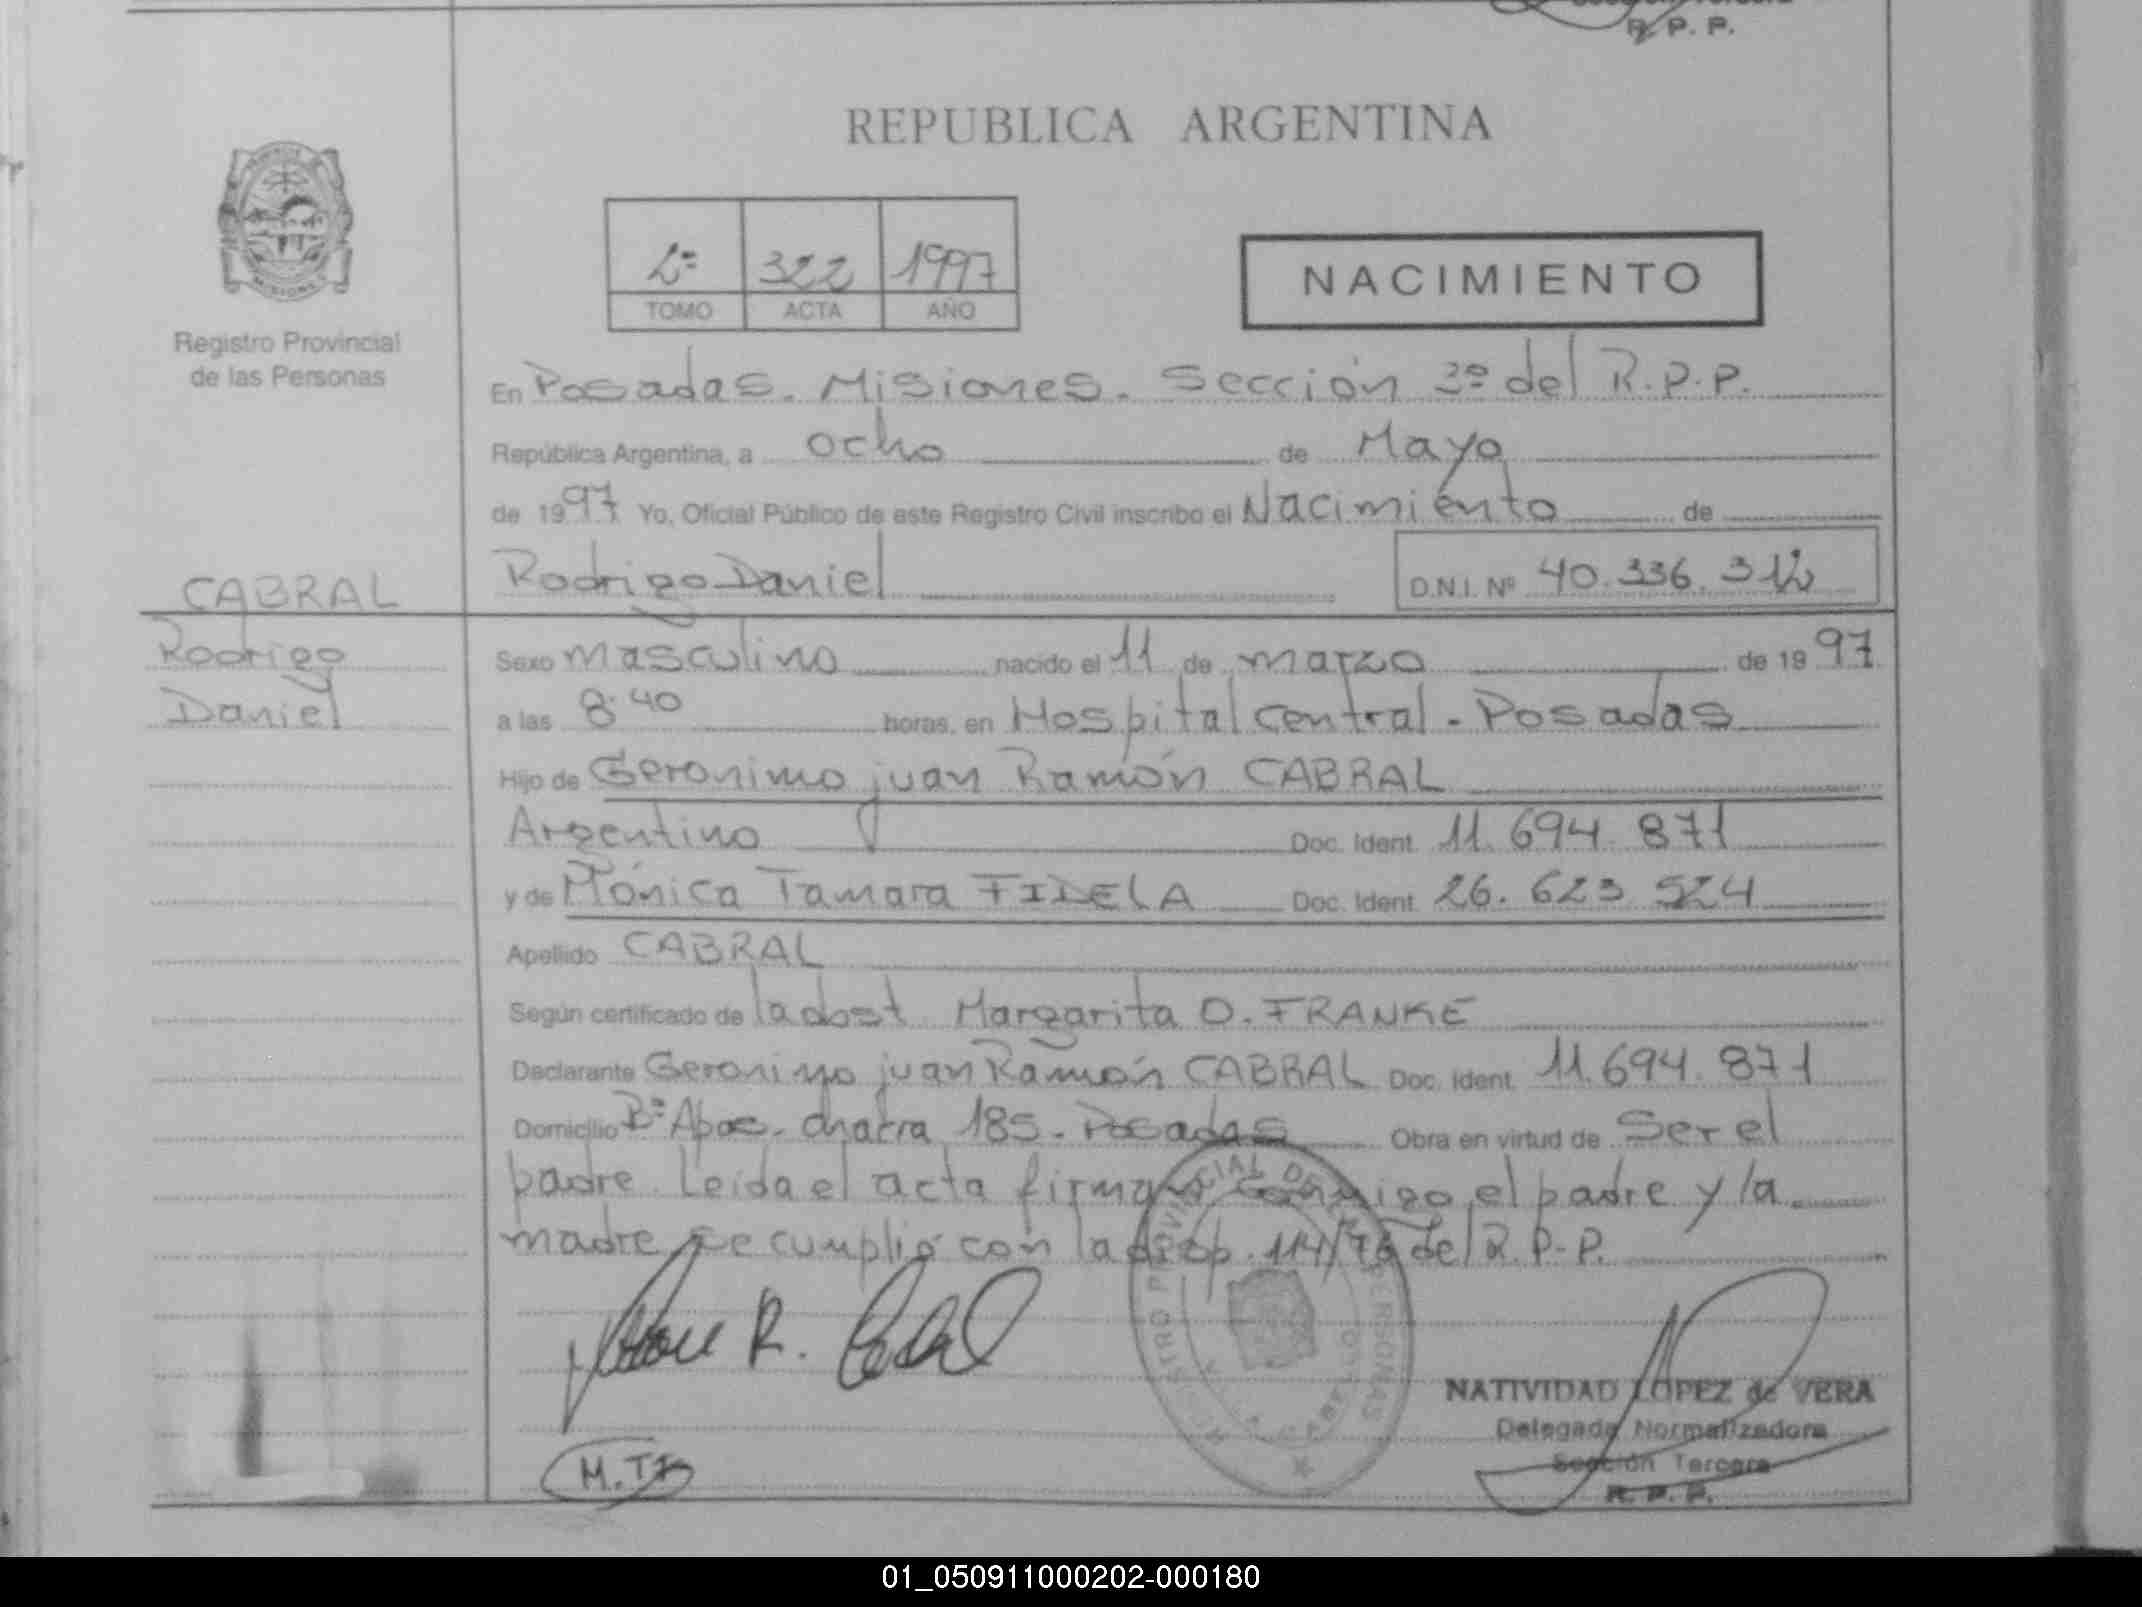 R. P. P.
REPUBLICA ARGENTINA
2º 322 1997
TOMO ACTA AÑO
NACIMIENTO
Registro Provincial
de las Personas
En Posadas. Misiones. Sección 3º del R.P.P.
República Argentina, a ocho de Mayo
de 1997 Yo, Oficial Público de este Registro Civil inscribo el Nacimiento de
CABRAL
Rodrigo Daniel
Rodrigo Daniel D.N.I. Nº 40.336.312
Sexo masculino nacido el 11 de marzo de 1997
a las 8:40 horas, en Hospital Central - Posadas
Hijo de Geronimo juan Ramón CABRAL
Argentino Doc. Ident. 11.694.871
y de Mónica Tamara FIDELA Doc. Ident. 26.623.524
Apellido CABRAL
Según certificado de la obst Margarita O. FRANKE
Declarante Geronimo juan Ramón CABRAL Doc. Ident. 11.694.871
Domicilio Bº Apos. chacra 185. Posadas Obra en virtud de Ser el
padre. Leída el acta firman conmigo el padre y la
madre se cumplió con la disp. 114/76 del R.P.P.
REGISTRO PROVINCIAL DE LAS PERSONAS
M.T.F
NATIVIDAD LOPEZ de VERA
Delegada Normalizadora
Sección Tercera
R. P. P.
01_050911000202-000180